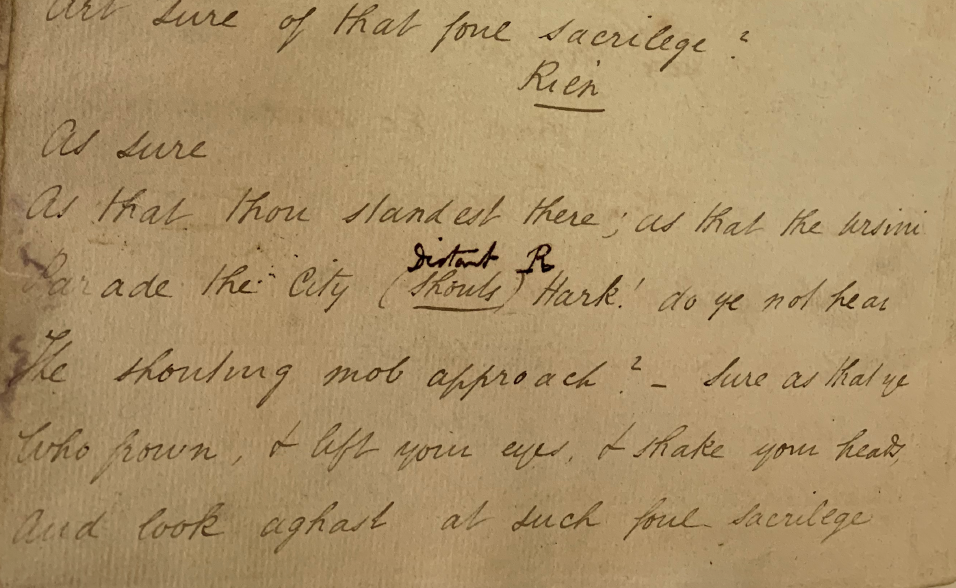 Art sure of that foul sacrilege?
Rien
As sure
As that thou standest there; as that the Ursini
Distant R
Parade the City (Shouts) Hark! do ye not hear
The shouting mob approach? - Sure as that ye
Who frown, & lift your eyes, & shake your heads,
And look aghast at such foul sacrilege